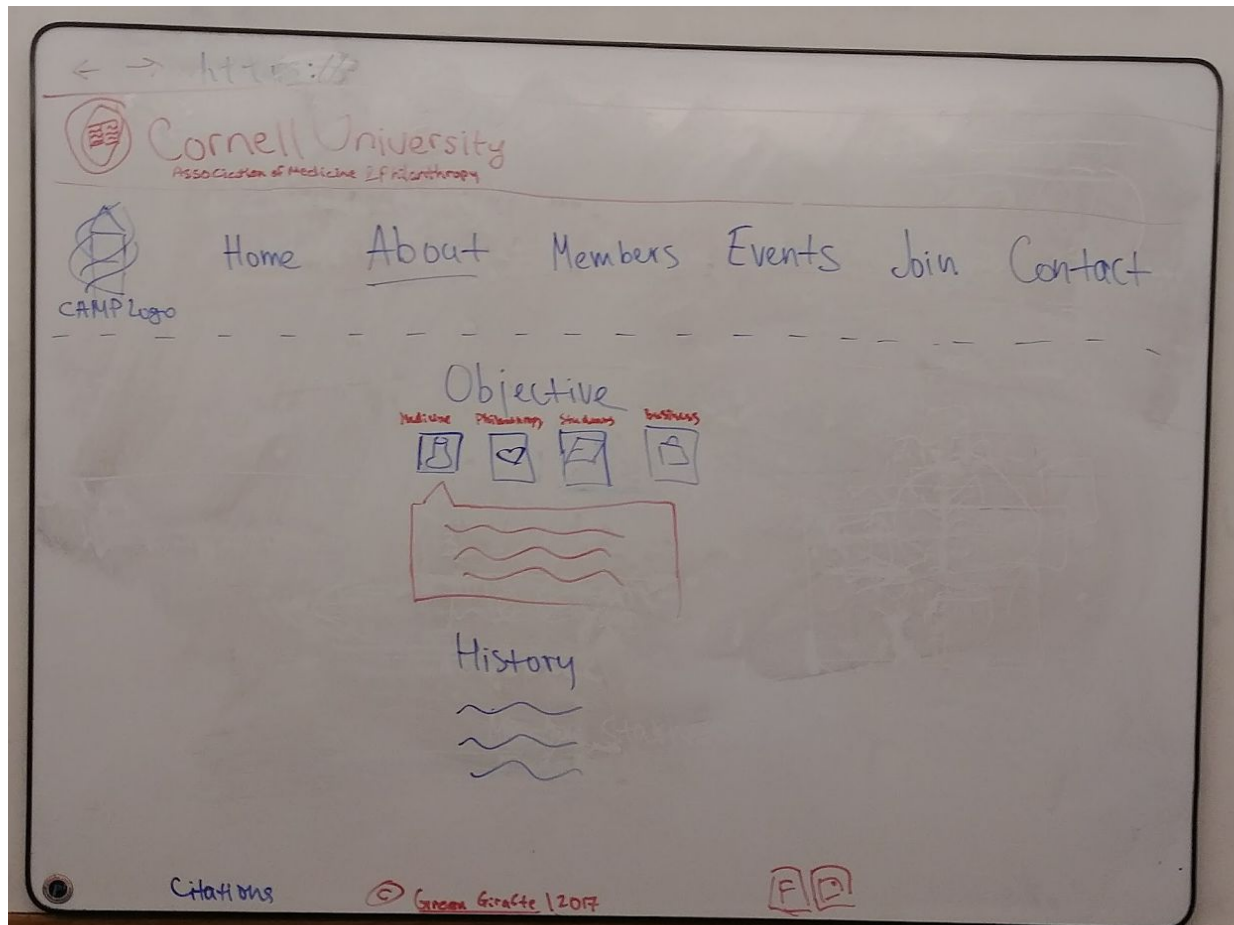 ← → https://
Cornell University
Association of Medicine & Philanthropy
Home About Members Events Join Contact
CAMP Logo
Objective
Medicine Philanthropy Students business
History
Citations © Green Giraffe | 2017 F